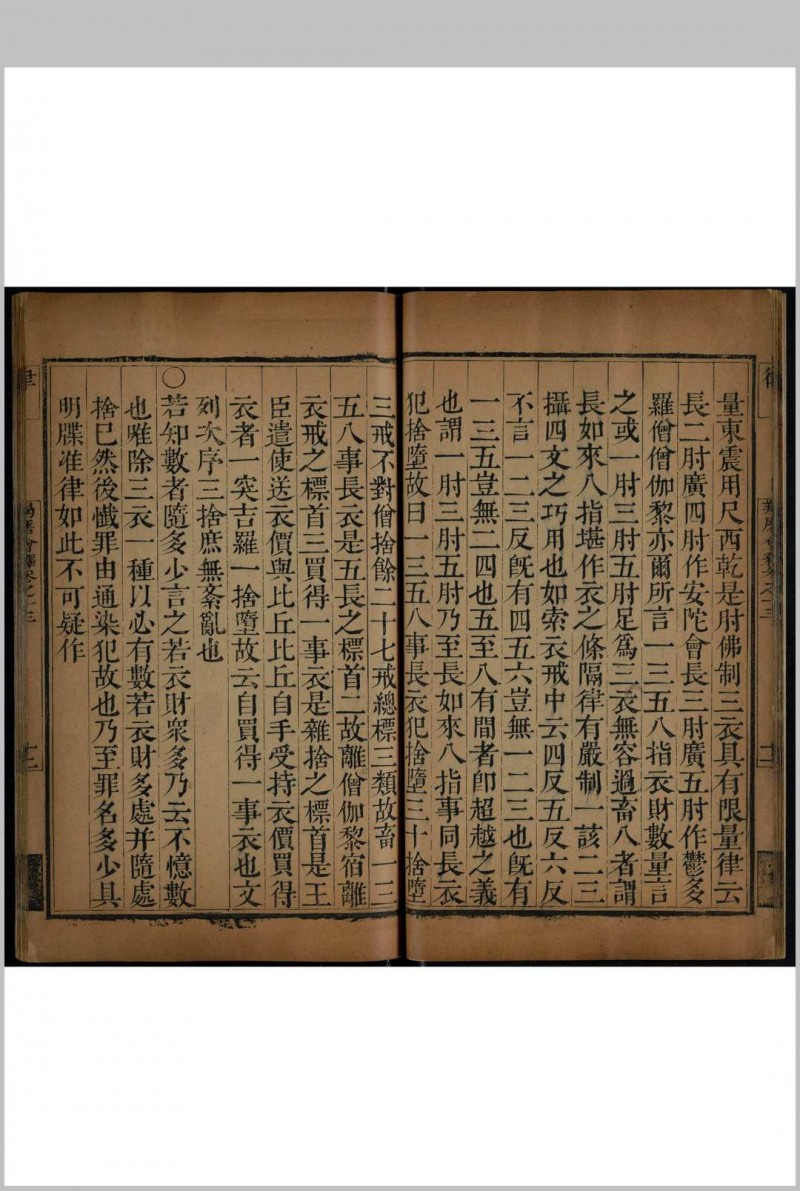 量東震用尺西乾是肘佛制三衣具有限量律云
長二肘廣四肘作安陀會長三肘廣五肘作鬱多
羅僧僧伽黎亦爾所言一三五八指衣財數量言
之或一肘三肘五肘足爲三衣無容過畜八者謂
長如來八指堪作衣之條隔律有嚴制一該二三
攝四文之巧用也如索衣戒中云四反五反六反
不言一二三反旣有四五六豈無一二三也旣有
一三五豈無二四也五至八有間者卽超越之義
也謂一肘三肘五肘乃至長如來八指事同長衣
犯捨墮故曰一三五八事長衣犯捨墮三十捨墮
三戒不對僧捨餘二十七戒總標三類故畜一三
五八事長衣是五長之標首二故離僧伽黎宿離
衣戒之標首三買得一事衣是雜捨之標首是王
臣遣使送衣價與比丘比丘自手受持衣價買得
衣者一突吉羅一捨墮故云自買得一事衣也文
列次序三捨庶無紊亂也
〇若知數者隨多少言之若衣財衆多乃云不憶數
也唯除三衣一種以必有數若衣財多處并隨處
捨已然後懺罪由通染犯故也乃至罪名多少具
明牒准律如此不可疑作